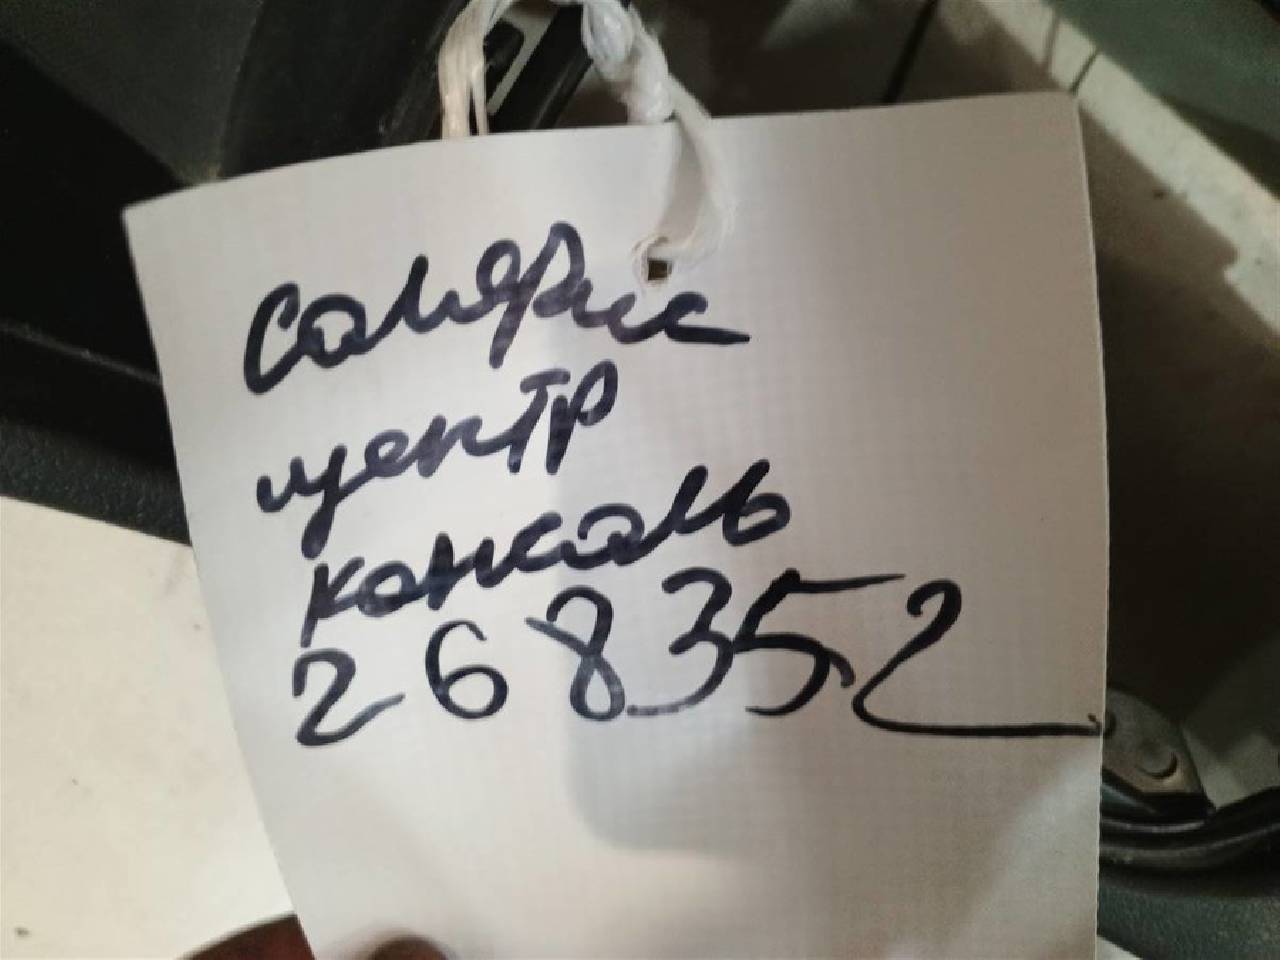 Солярис
центр
консоль
268352